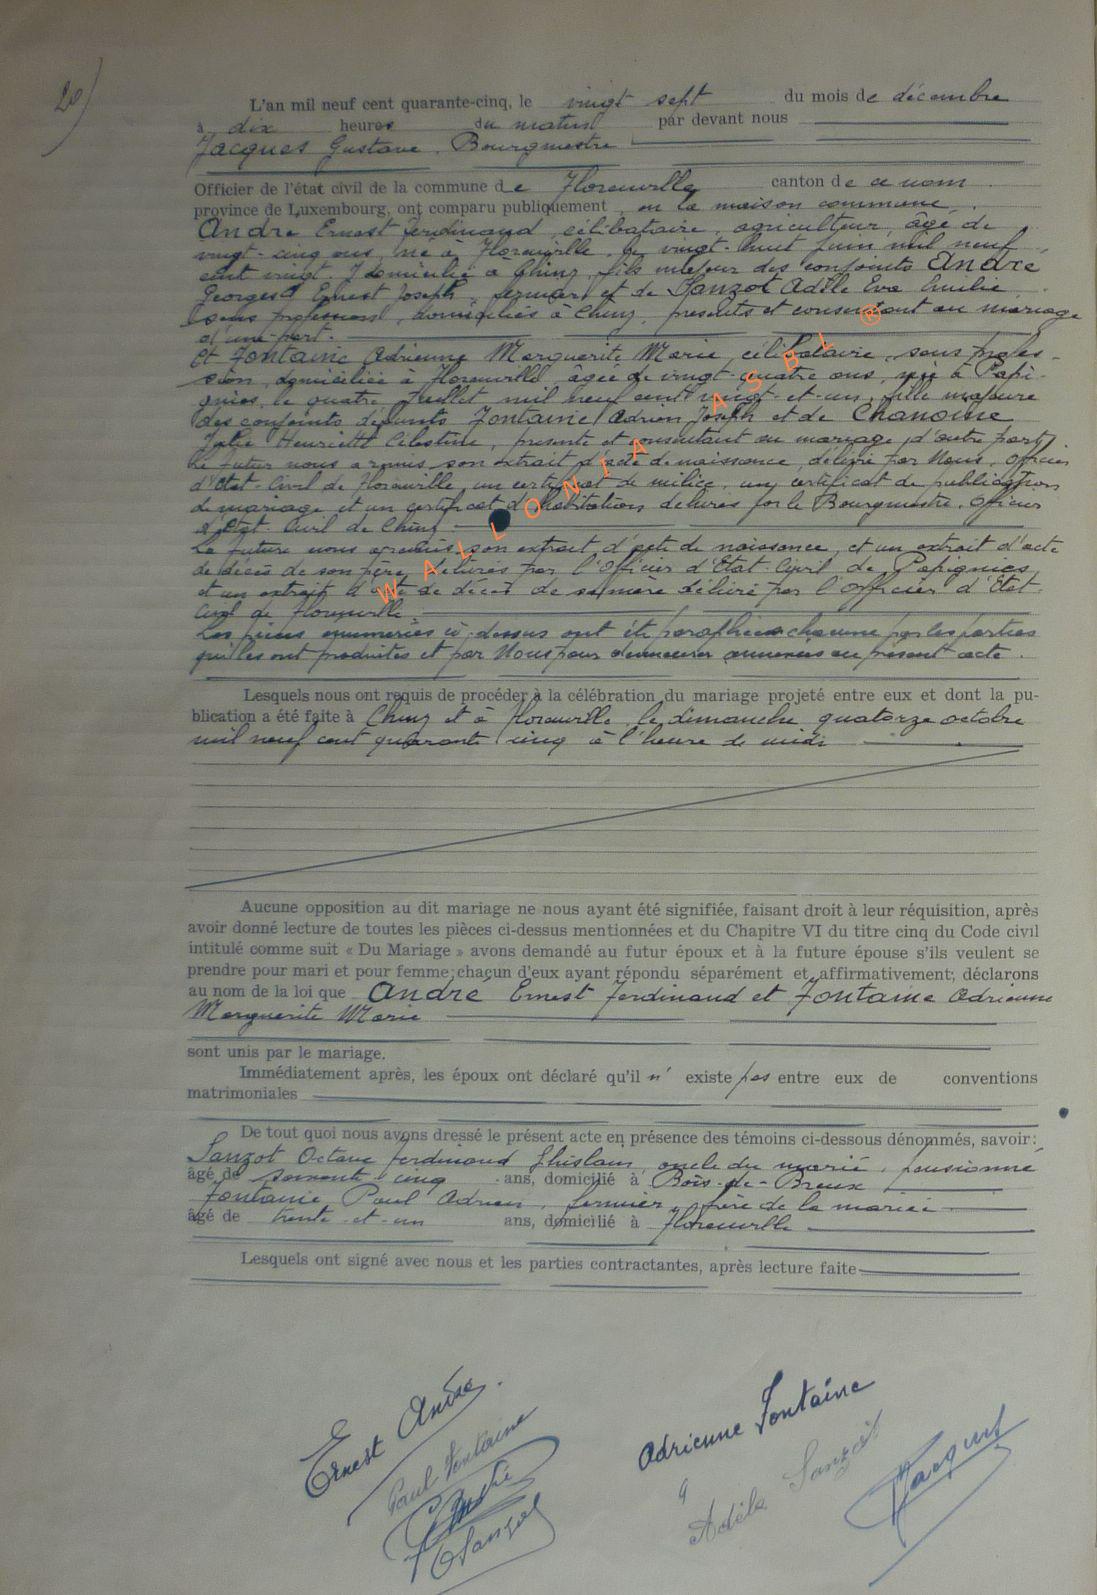 20)
L'an mil neuf cent quarante-cinq, le vingt sept du mois de décembre
à dix heures du matin par devant nous
Jacques Gustave. Bourgmestre
Officier de l'état civil de la commune de Florenville canton de ce nom
province de Luxembourg, ont comparu publiquement en la maison commune.
André Ernest Ferdinand, célibataire, agriculteur, âgé de
vingt-cinq ans, né à Florenville, le vingt-huit juin mil neuf
cent vingt. domicilié à Chiny, fils majeur des conjoints André
Georges Ernest Joseph, fermier et de Sanzot Adèle Eva Emilie
sans profession, domiciliés à Chiny, présents et consentant au mariage
d'une part.
Et Fontaine Adrienne Marguerite Marie, célibataire, sans profes-
sion, domiciliée à Florenville, âgée de vingt-quatre ans, née à Papi-
gnies, le quatre juillet mil neuf cent vingt-et-un, fille majeure
des conjoints défunts Fontaine Adrien Joseph et de Chanoine
Julie Henriette Célestine, présente et consentant au mariage, d'autre part.
Le futur nous a remis son extrait d'acte de naissance, délivré par Nous, Officier
d'Etat-Civil de Florenville, un certificat de milice, un certificat de publication
de mariage et un certificat d'habitation délivrés par le Bourgmestre. Officier
d'Etat-Civil de Chiny
La future nous a remis son extrait d'acte de naissance, et un extrait d'acte
de décès de son père, délivrés par l'Officier d'Etat-Civil de Papignies
et un extrait d'acte de décès de sa mère délivré par l'Officier d'Etat-
Civil de Florenville
Les pièces énumérées ci-dessus ont été paraphées chacune par les parties
qui les ont produites et par Nous pour demeurer annexées au présent acte.
Lesquels nous ont requis de procéder à la célébration du mariage projeté entre eux et dont la pu-
blication a été faite à Chiny et à Florenville, le dimanche quatorze octobre
mil neuf cent quarante cinq à l'heure de midi
Aucune opposition au dit mariage ne nous ayant été signifiée, faisant droit à leur réquisition, après
avoir donné lecture de toutes les pièces ci-dessus mentionnées et du Chapitre VI du titre cinq du Code civil
intitulé comme suit « Du Mariage » avons demandé au futur époux et à la future épouse s'ils veulent se
prendre pour mari et pour femme; chacun d'eux ayant répondu séparément et affirmativement; déclarons
au nom de la loi que André Ernest Ferdinand et Fontaine Adrienne
Marguerite Marie
sont unis par le mariage.
Immédiatement après, les époux ont déclaré qu'il n'existe pas entre eux de conventions
matrimoniales
De tout quoi nous avons dressé le présent acte en présence des témoins ci-dessous dénommés, savoir:
Sanzot Octave Ferdinand Ghislain, oncle du marié, pensionné
âgé de soixante-cinq ans, domicilié à Bois-de-Breux
Fontaine Paul Adrien, fermier, frère de la mariée
âgé de trente-et-un ans, domicilié à Florenville
Lesquels ont signé avec nous et les parties contractantes, après lecture faite
Ernest André.
Adrienne Fontaine
Paul Fontaine
Adèle Sanzot
Jacques
André
OSanzot
WALLONIA ASBL ®